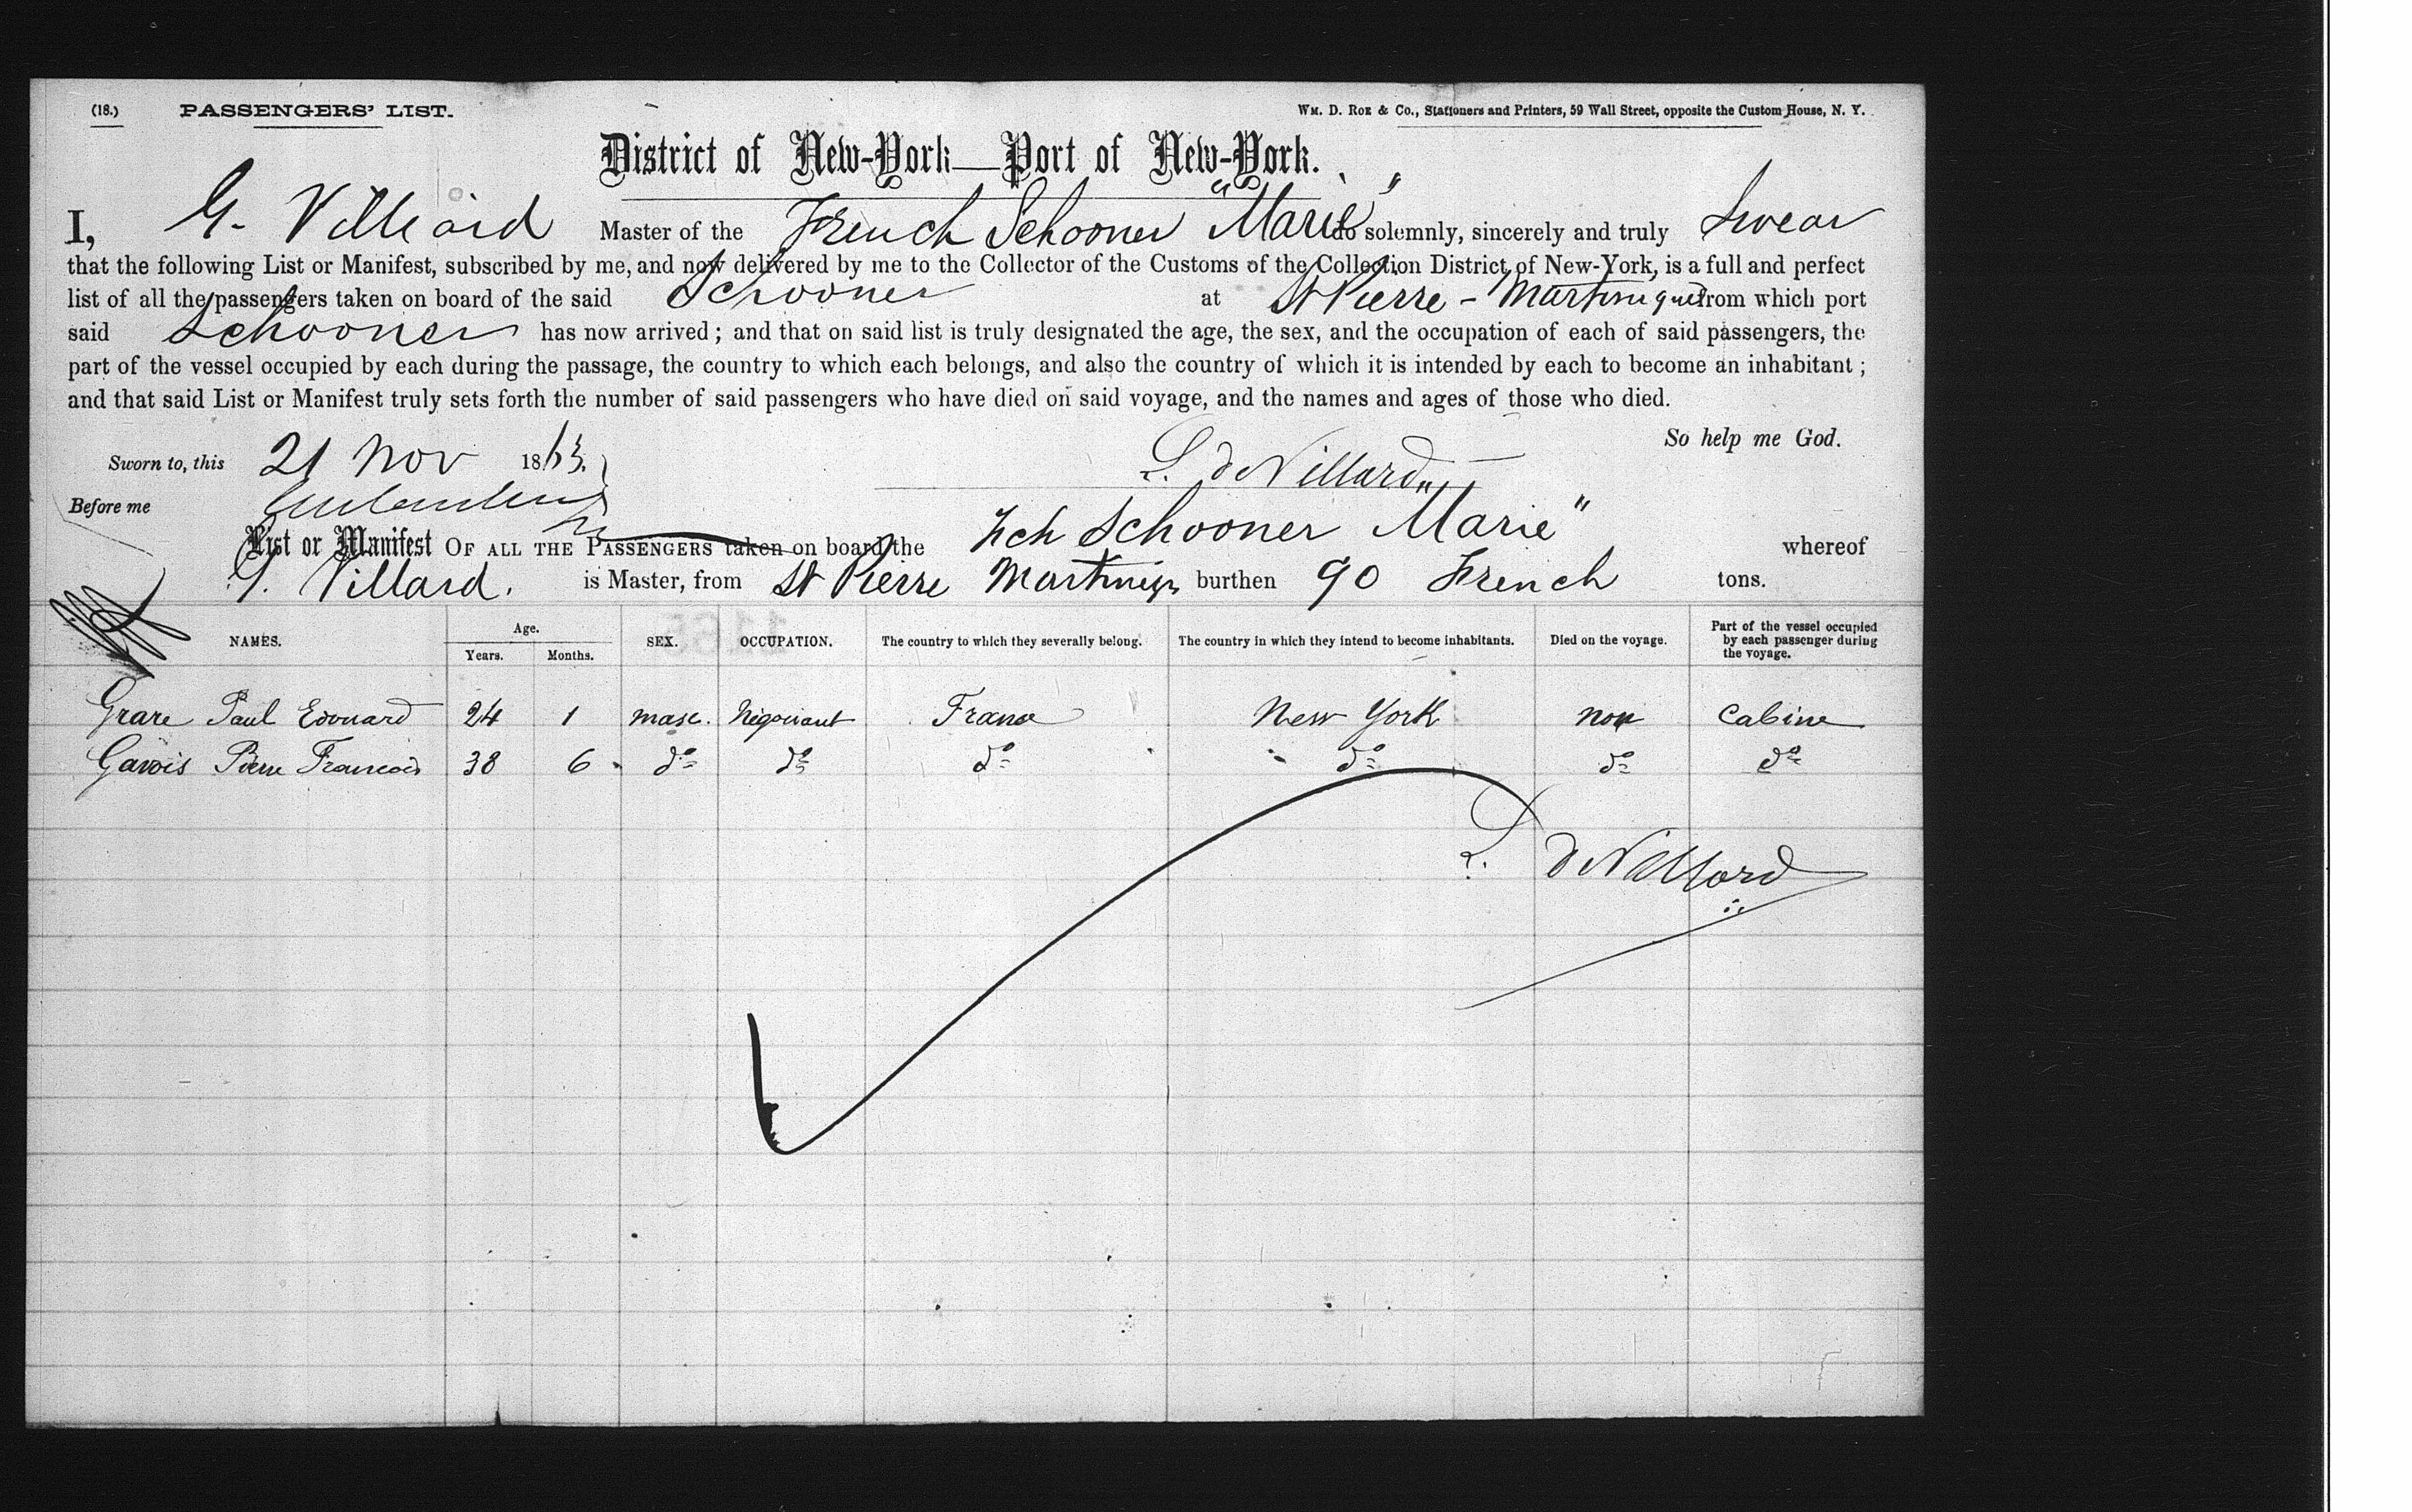 (18.) PASSENGERS' LIST. Wm. D. Roe & Co., Stationers and Printers, 59 Wall Street, opposite the Custom House, N. Y.
District of New-York—Port of New-York.
I, G. Villiard Master of the French Schooner "Marie" do solemnly, sincerely and truly Swear
that the following List or Manifest, subscribed by me, and now delivered by me to the Collector of the Customs of the Collection District of New-York, is a full and perfect
list of all the passengers taken on board of the said Schooner at St Pierre - Martinique from which port
said Schooner has now arrived; and that on said list is truly designated the age, the sex, and the occupation of each of said passengers, the
part of the vessel occupied by each during the passage, the country to which each belongs, and also the country of which it is intended by each to become an inhabitant;
and that said List or Manifest truly sets forth the number of said passengers who have died on said voyage, and the names and ages of those who died.
So help me God.
Sworn to, this 21 Nov 1863. Villard
Before me
List or Manifest OF ALL THE PASSENGERS taken on board the Fch Schooner "Marie" whereof
G. Villard. is Master, from St Pierre burthen 90 French tons.
NAMES. Age. Years. Months. SEX. OCCUPATION. The country to which they severally belong. The country in which they intend to become inhabitants. Died on the voyage. Part of the vessel occupied by each passenger during the voyage.
Grare Paul Edouard 24 1 masc. Négociant France New York non Cabine
Gavois Pierre Francois 38 6 do do do do do do
1165